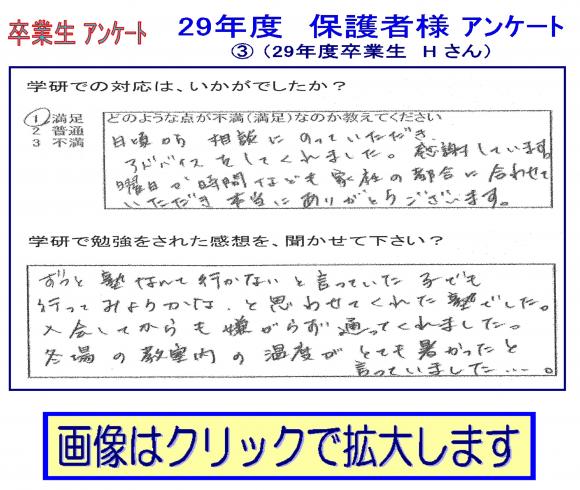 卒業生 アンケート
29年度 保護者様 アンケート
③（29年度卒業生 Hさん）
学研での対応は、いかがでしたか？
1 満足
2 普通
3 不満
どのような点が不満(満足)なのか教えてください
日頃から 相談にのっていただき、
アドバイスをしてくれました。感謝しています。
曜日や時間なども家庭の都合に合わせて
いただき本当にありがとうございます。
学研で勉強をされた感想を、聞かせて下さい？
ずっと塾なんて行かないと言っていた子でも
行ってみようかな、と思わせてくれた塾でした。
入会してからも嫌がらず通ってくれました。
冬場の教室内の温度がとても暑かったと
言っていました…。
画像はクリックで拡大します